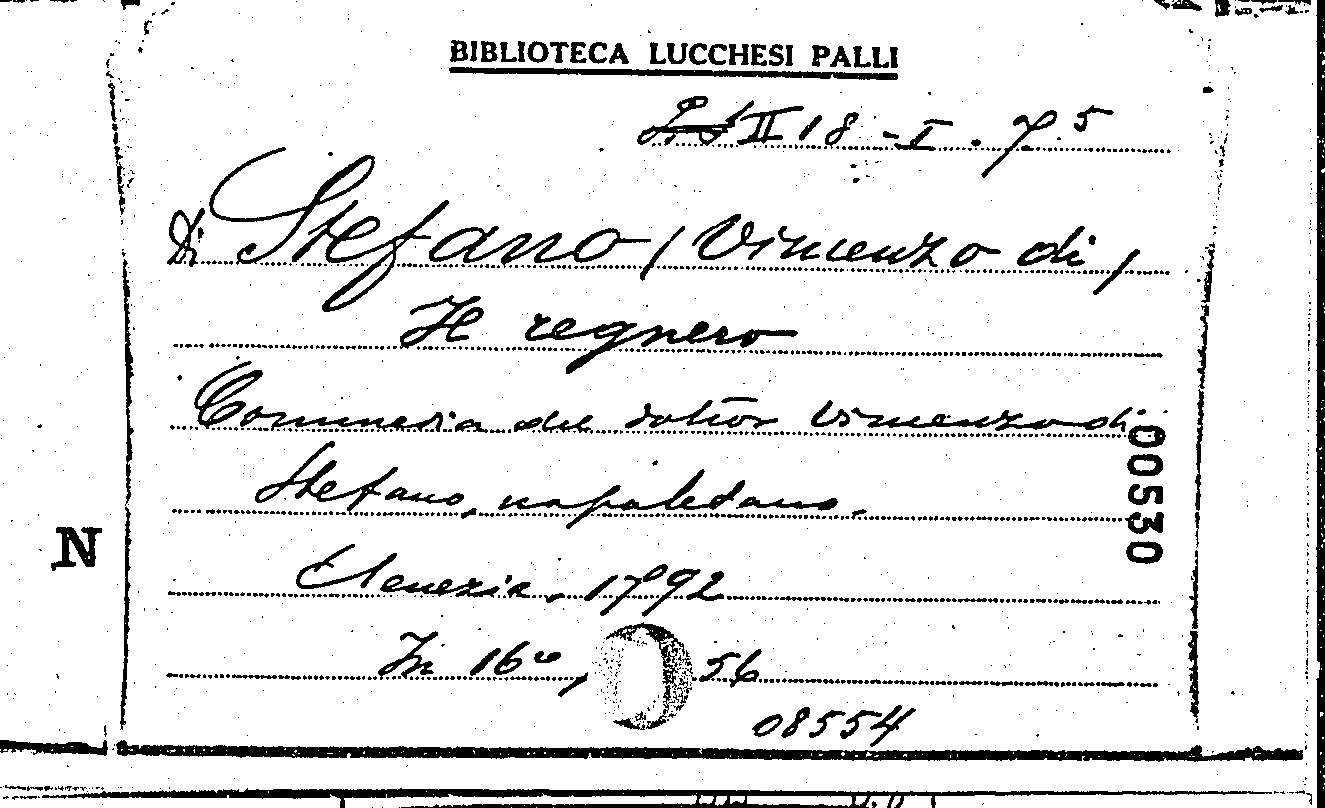 BIBLIOTECA LUCCHESI PALLI
II 18 - I . 7.5
Di Stefano (Vincenzo di)
Il regnero
Commedia del dottor Vincenzo di
Stefano, napoletano.
Venezia, 1792
In 16°, 56
08554
00530
N